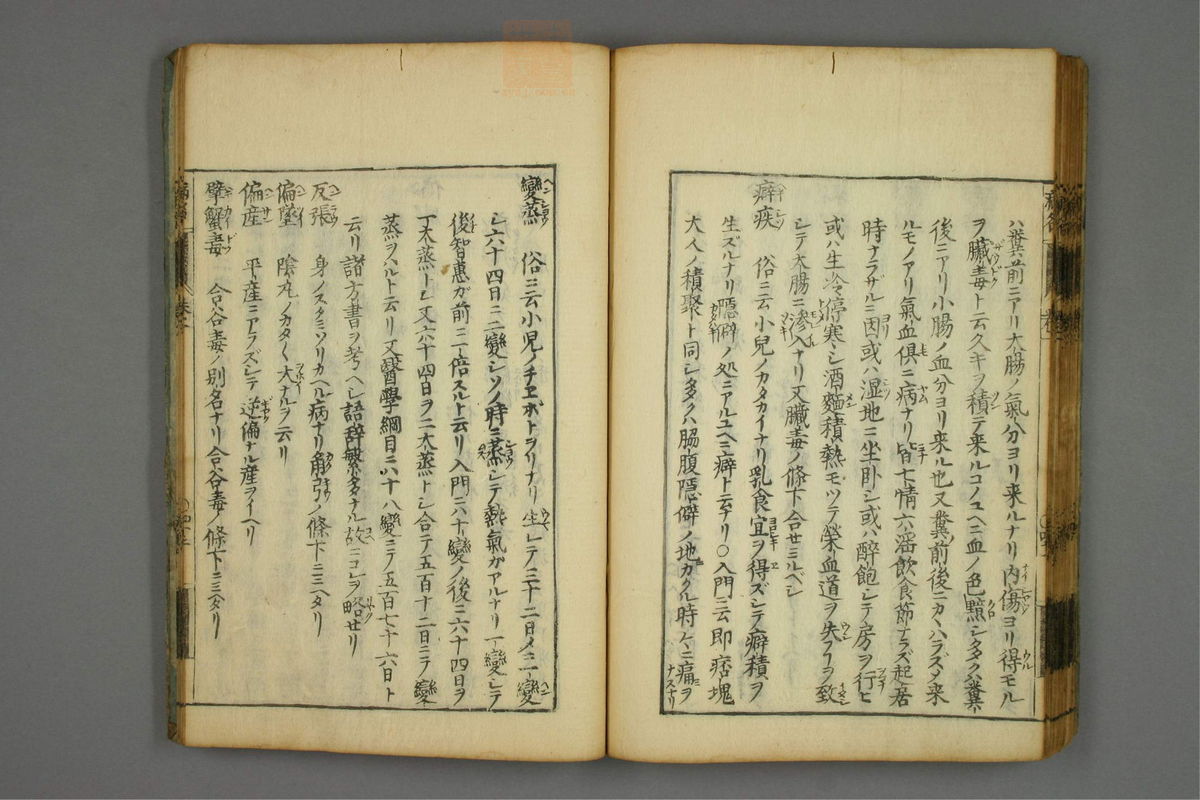 ハ糞前ニアリ大腸ノ氣分ヨリ来ルナリ内傷ヨリ得モル
ヲ臓毒ト云久キヲ積テ来ルコノユヘニ血ノ色黯シ多クハ糞ト
後ニアリ小腸ノ血分ヨリ来ル也又糞前後ニカヽハラズメ来
ルモノアリ氣血俱ニ病ナリ皆七情六淫飲食節ナラズ起居
時ナラザルニ因或ハ湿地ニ坐卧シ或ハ醉飽シテ房ヲ行ヒ
或ハ生冷停寒シ酒麵積熱モツテ榮血道ヲ失フヿヲ致
シテ大腸ニ滲入ナリ又臓毒ノ條下合セミルベシ
癖疾 俗ニ云小兒ノカタカイナリ乳食宜ヲ得ズシテ癖積ヲ
生ズルナリ隠僻ノ処ニアルユヘニ癖ト云ナリ○入門ニ云即痞塊
大人ノ積聚ト同シ多クハ脇腹隠僻ノ地カクル時々ニ痛ヲ
ナスナリ
變蒸 俗ニ云小児ノチヱボトヲリナリ生レテ三十二日メニ一變
シ六十四日ニ二變シソノ時ニ蒸シテ熱氣ガアルナリ一變シテ
後智惠ガ前ニ一倍スルト云リ入門ニ六十變ノ後ニ六十四日ヲ
丁大蒸トシ又六十四日ヲ二大蒸トシ合テ五百十二日ニテ變
蒸ヲハルト云リ又醫學綱目ニハ十八變ニテ五百七十六日ト
云リ諸方書ヲ考ヘシ語辞繁多ナル故ニコレヲ略セリ
反張 身ノスクミソリカヘル病ナリ角弓ノ條下ニミヘタリ
偏墜 陰丸ノカタ〱大ナルヲ云リ
偏産 平産ニアラズシテ逆偏ナル産ヲイヘリ
擘蟹毒 合谷毒ノ別名ナリ合谷毒ノ條下ニミヘタリ